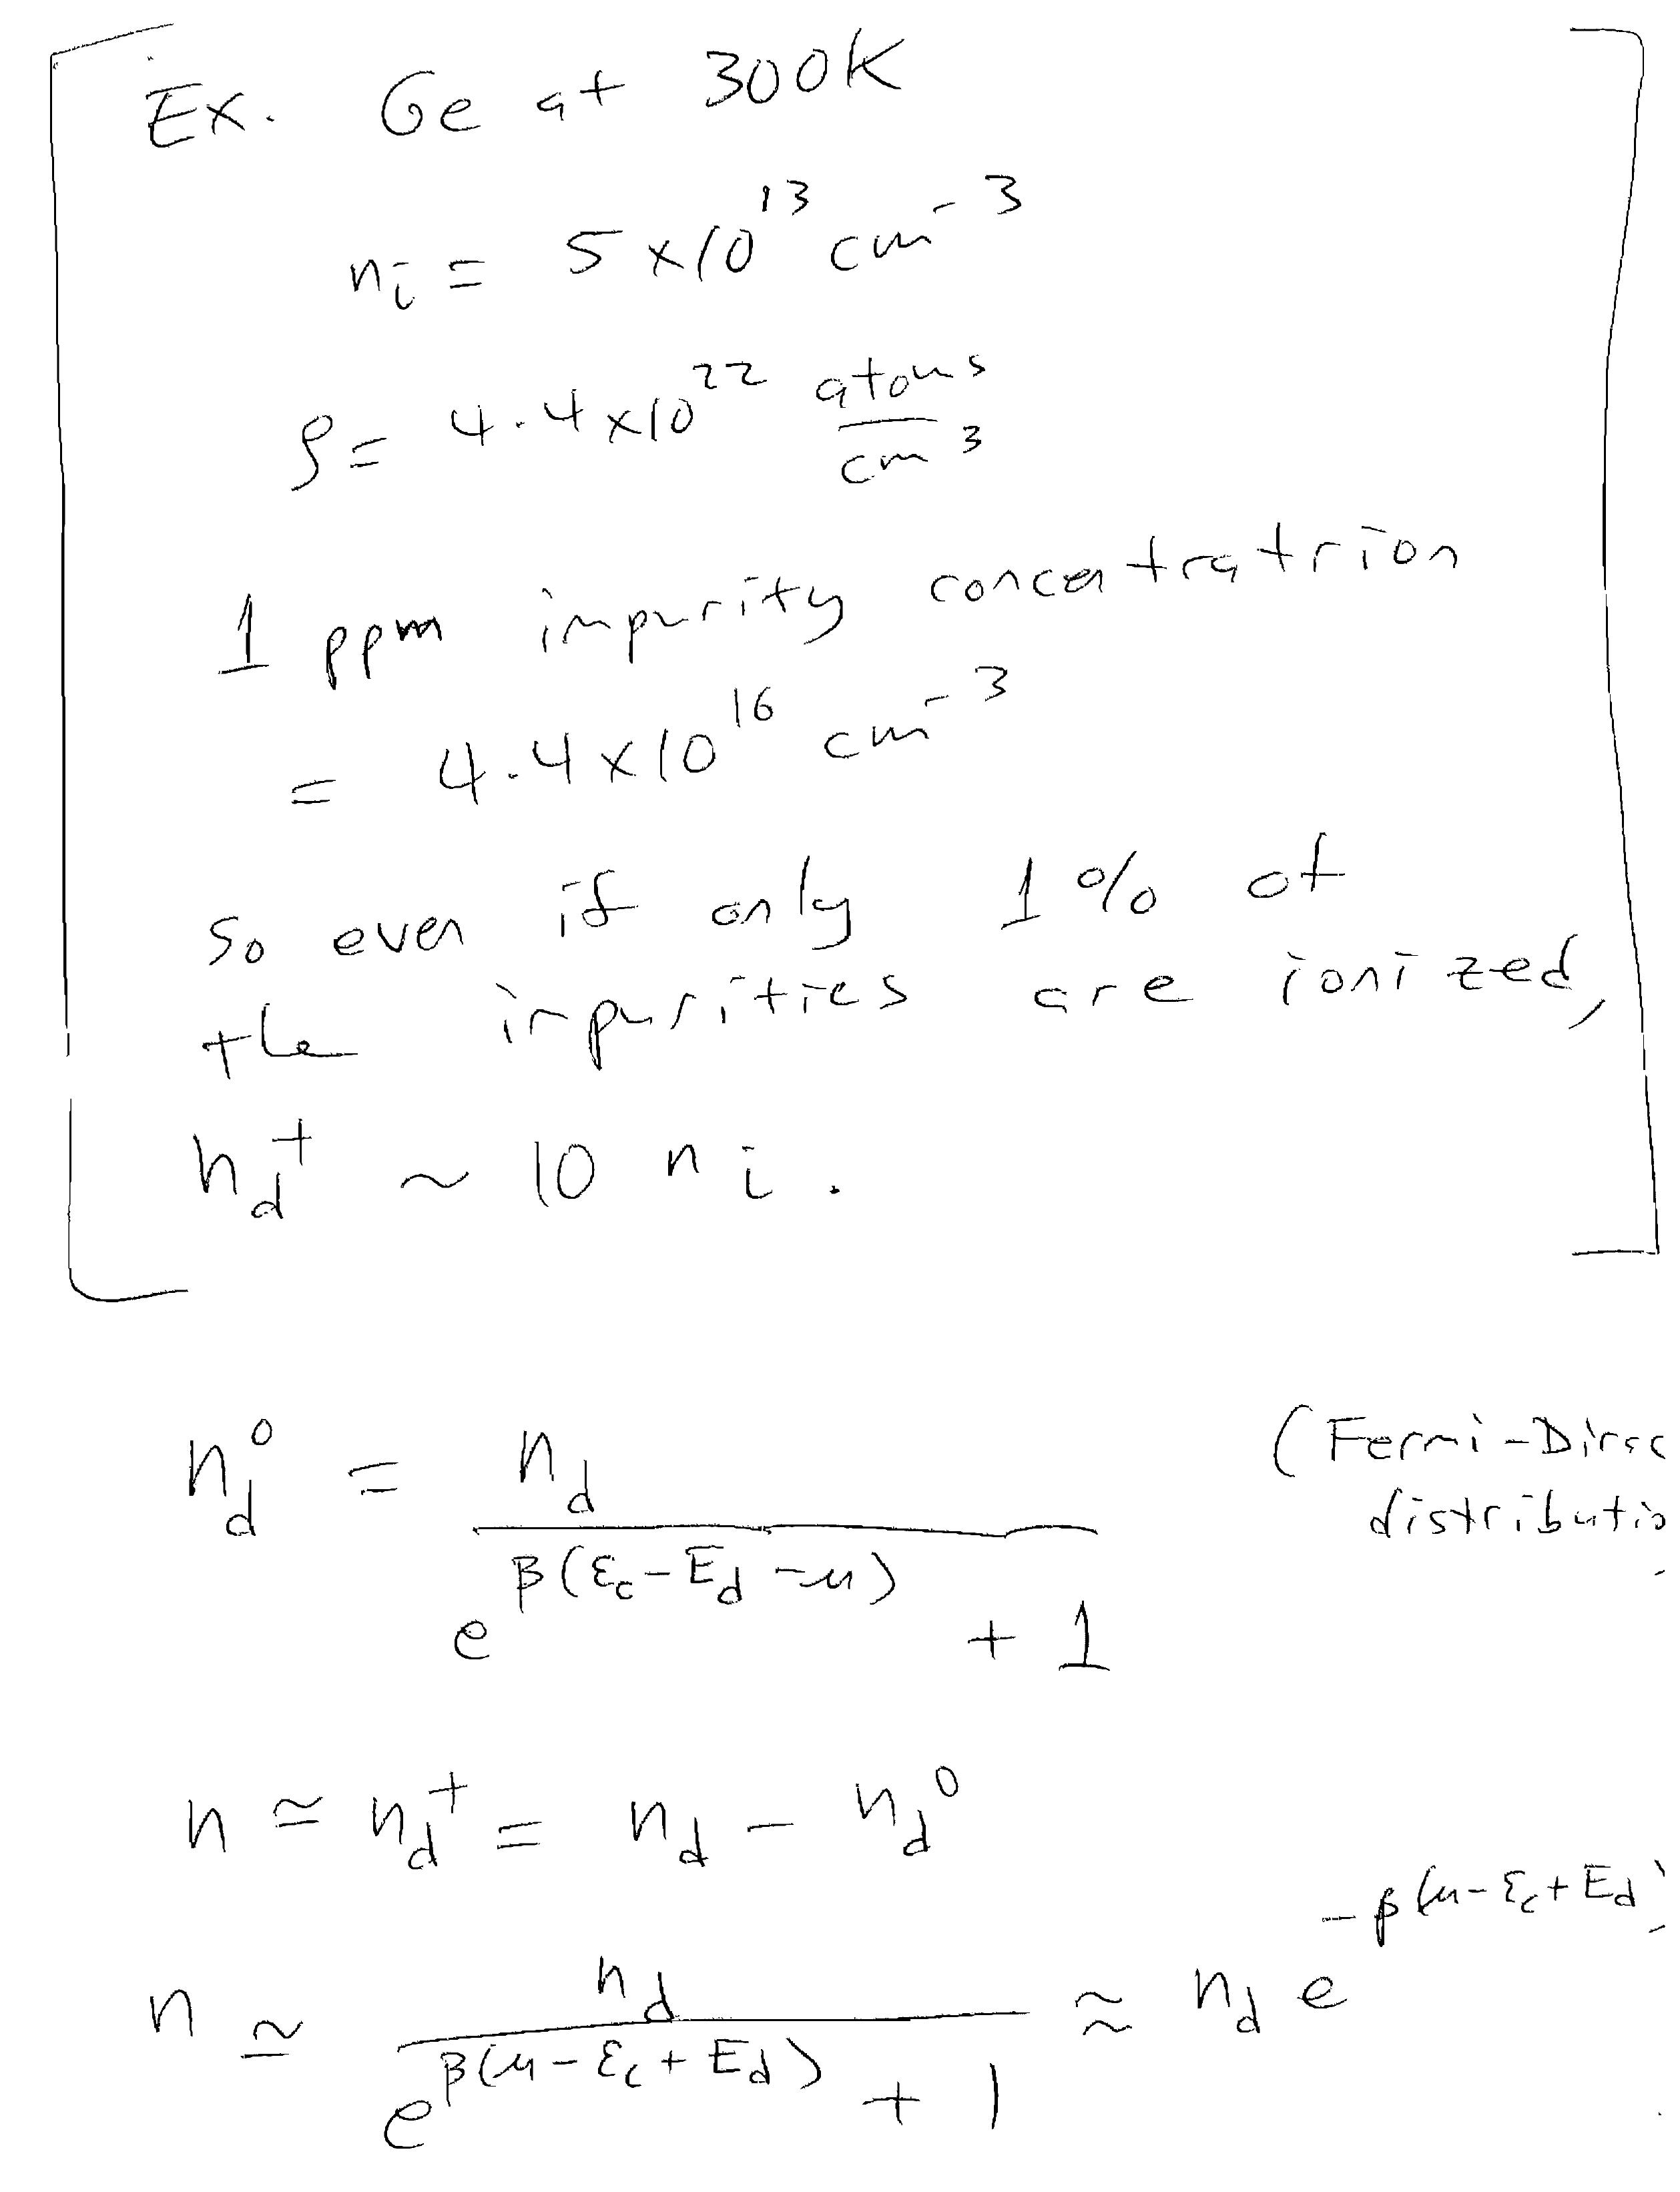 Ex. Ge at 300K
n_i = 5 x 10^13 cm^-3
ρ = 4.4 x 10^22 atoms/cm^3
1 ppm impurity concentratrion
= 4.4 x 10^16 cm^-3
so even if only 1% of
the impurities are ionized,
n_d^+ ~ 10 n_i.
n_d^0 = n_d / (e^{β(ε_c - E_d - μ)} + 1) (Fermi-Dirac
distributio
n ≃ n_d^+ = n_d - n_d^0
n ≃ n_d / (e^{β(μ - ε_c + E_d)} + 1) ≈ n_d e^{-β(μ - ε_c + E_d)}